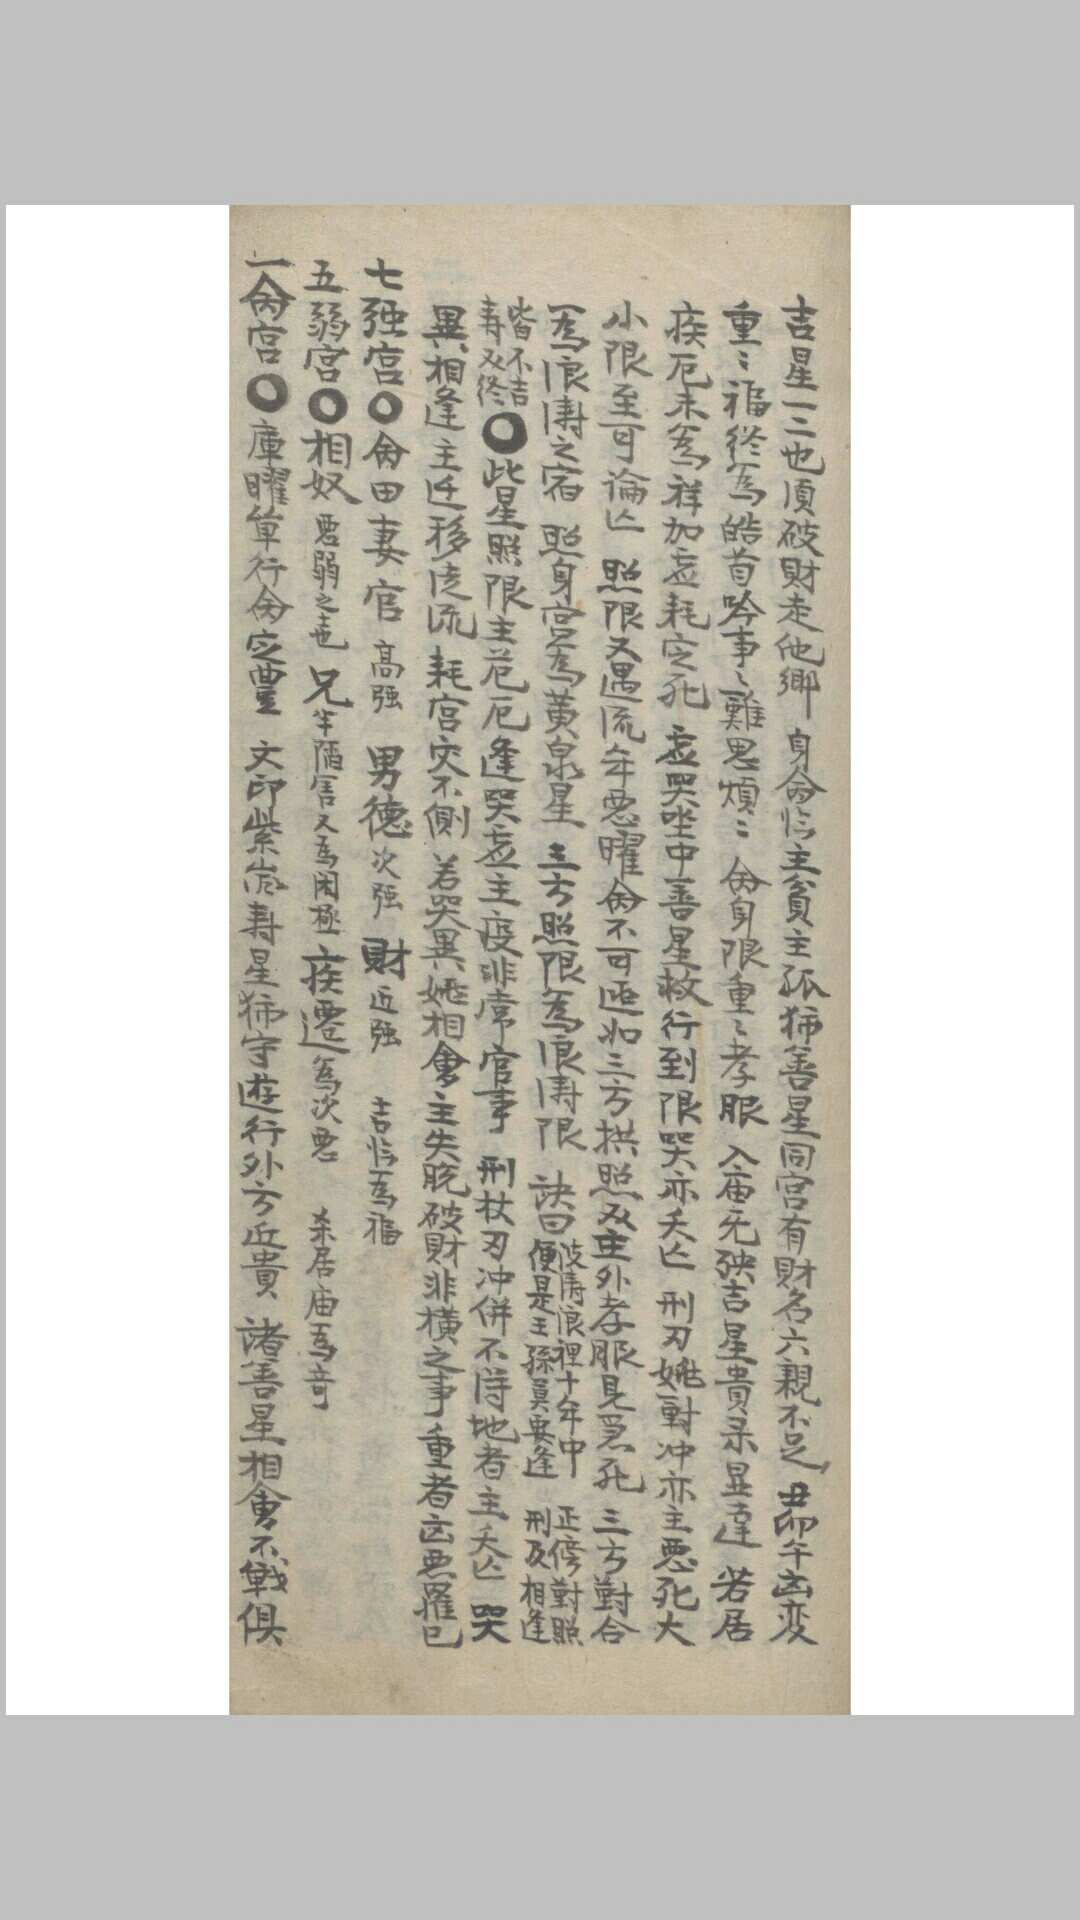 吉星一二也須破財走他鄉 身命临主貧主孤 㹥善星同宮有財名六親不足 丑卯午凶変
重〻福終為皓首吟事〻難思煩〻 命身限重〻孝服 入庙无殃吉星貴录显達 若居
疾厄未為祥加虚耗定死 虚哭坐中善星救行到限哭亦夭亡 刑刃姚對冲亦主惡死大
小限至可論亡 照限又遇流年惡曜命不可 如三方拱照双主外孝服見 死 三方對合
一為浪濤之宿 照身宮為黃泉星 三方照限為浪濤限 訣曰 波濤浪裡十年中 便是王孫莫要逢 正傍對照 刑及相逢
皆不吉 寿双終 〇此星照限主危厄逢哭虚主疫非常官事 刑杖刃冲併不得地者主夭亡 哭
異相逢主迁移徒流 耗宮灾不測 若哭異姚相會主失脫破財非橫之事重者凶惡罹已
七强宮〇命田妻官 高强 男德 次强 財 近强 吉临為福
五弱宮〇相奴 惡弱之 也 兄 半陷害又為闲極 疾遷 為次惡 杀居庙為奇
一命宮〇庫曜單行命定豊 文印紫 寿星㹥守遊行外方近貴 諸善星相會不戰俱